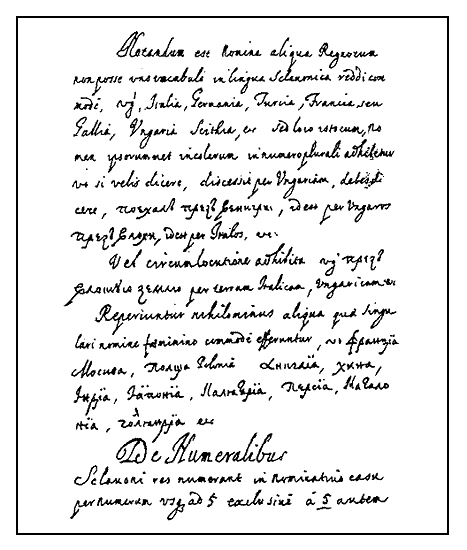 Notandum est Nomina aliqua Regnorum
non posse uno vocabulo in lingua Sclavonica reddi com
modè, vg: Italia, Germania, Turcia, Francia, seu
Gallia, Ungaria Scithia, etc sed loco istorum, no
men ipsorummet incolarum in numero plurali adhibetur
ut si velis dicere, discessit per Ungariam, debes di
cere, поехалъ презъ Венгри, id est per Ungaros
презъ Влахи, id est per Italos, etc.
Vel circumlocutione adhibita vg: презъ
землю per terram Italicam, Ungaricam etc
Reperiuntur nihilominus aliqua quæ singu
lari nomine fæminino commodè efferuntur, ut Францїа
Москва, Полща Polonia Англїа, Хина,
Індїа, Іапонїа, Малтарїа, Персїа, Катало
нїа, голландїа etc
De Numeralibus
Sclavoni res numerant in nominativo casu
per numerum usq, ad 5 exclusivè á 5 autem